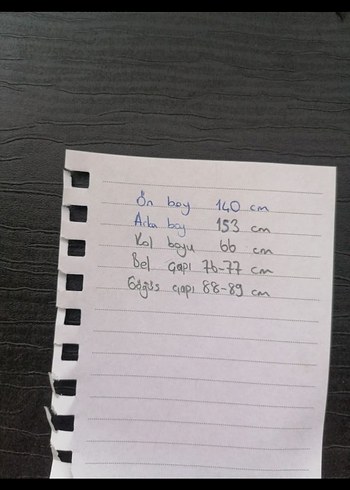 Ön boy 140 cm
Arka boy 153 cm
Kol boyu 66 cm
Bel çapı 76-77 cm
Göğüs çapı 88-89 cm